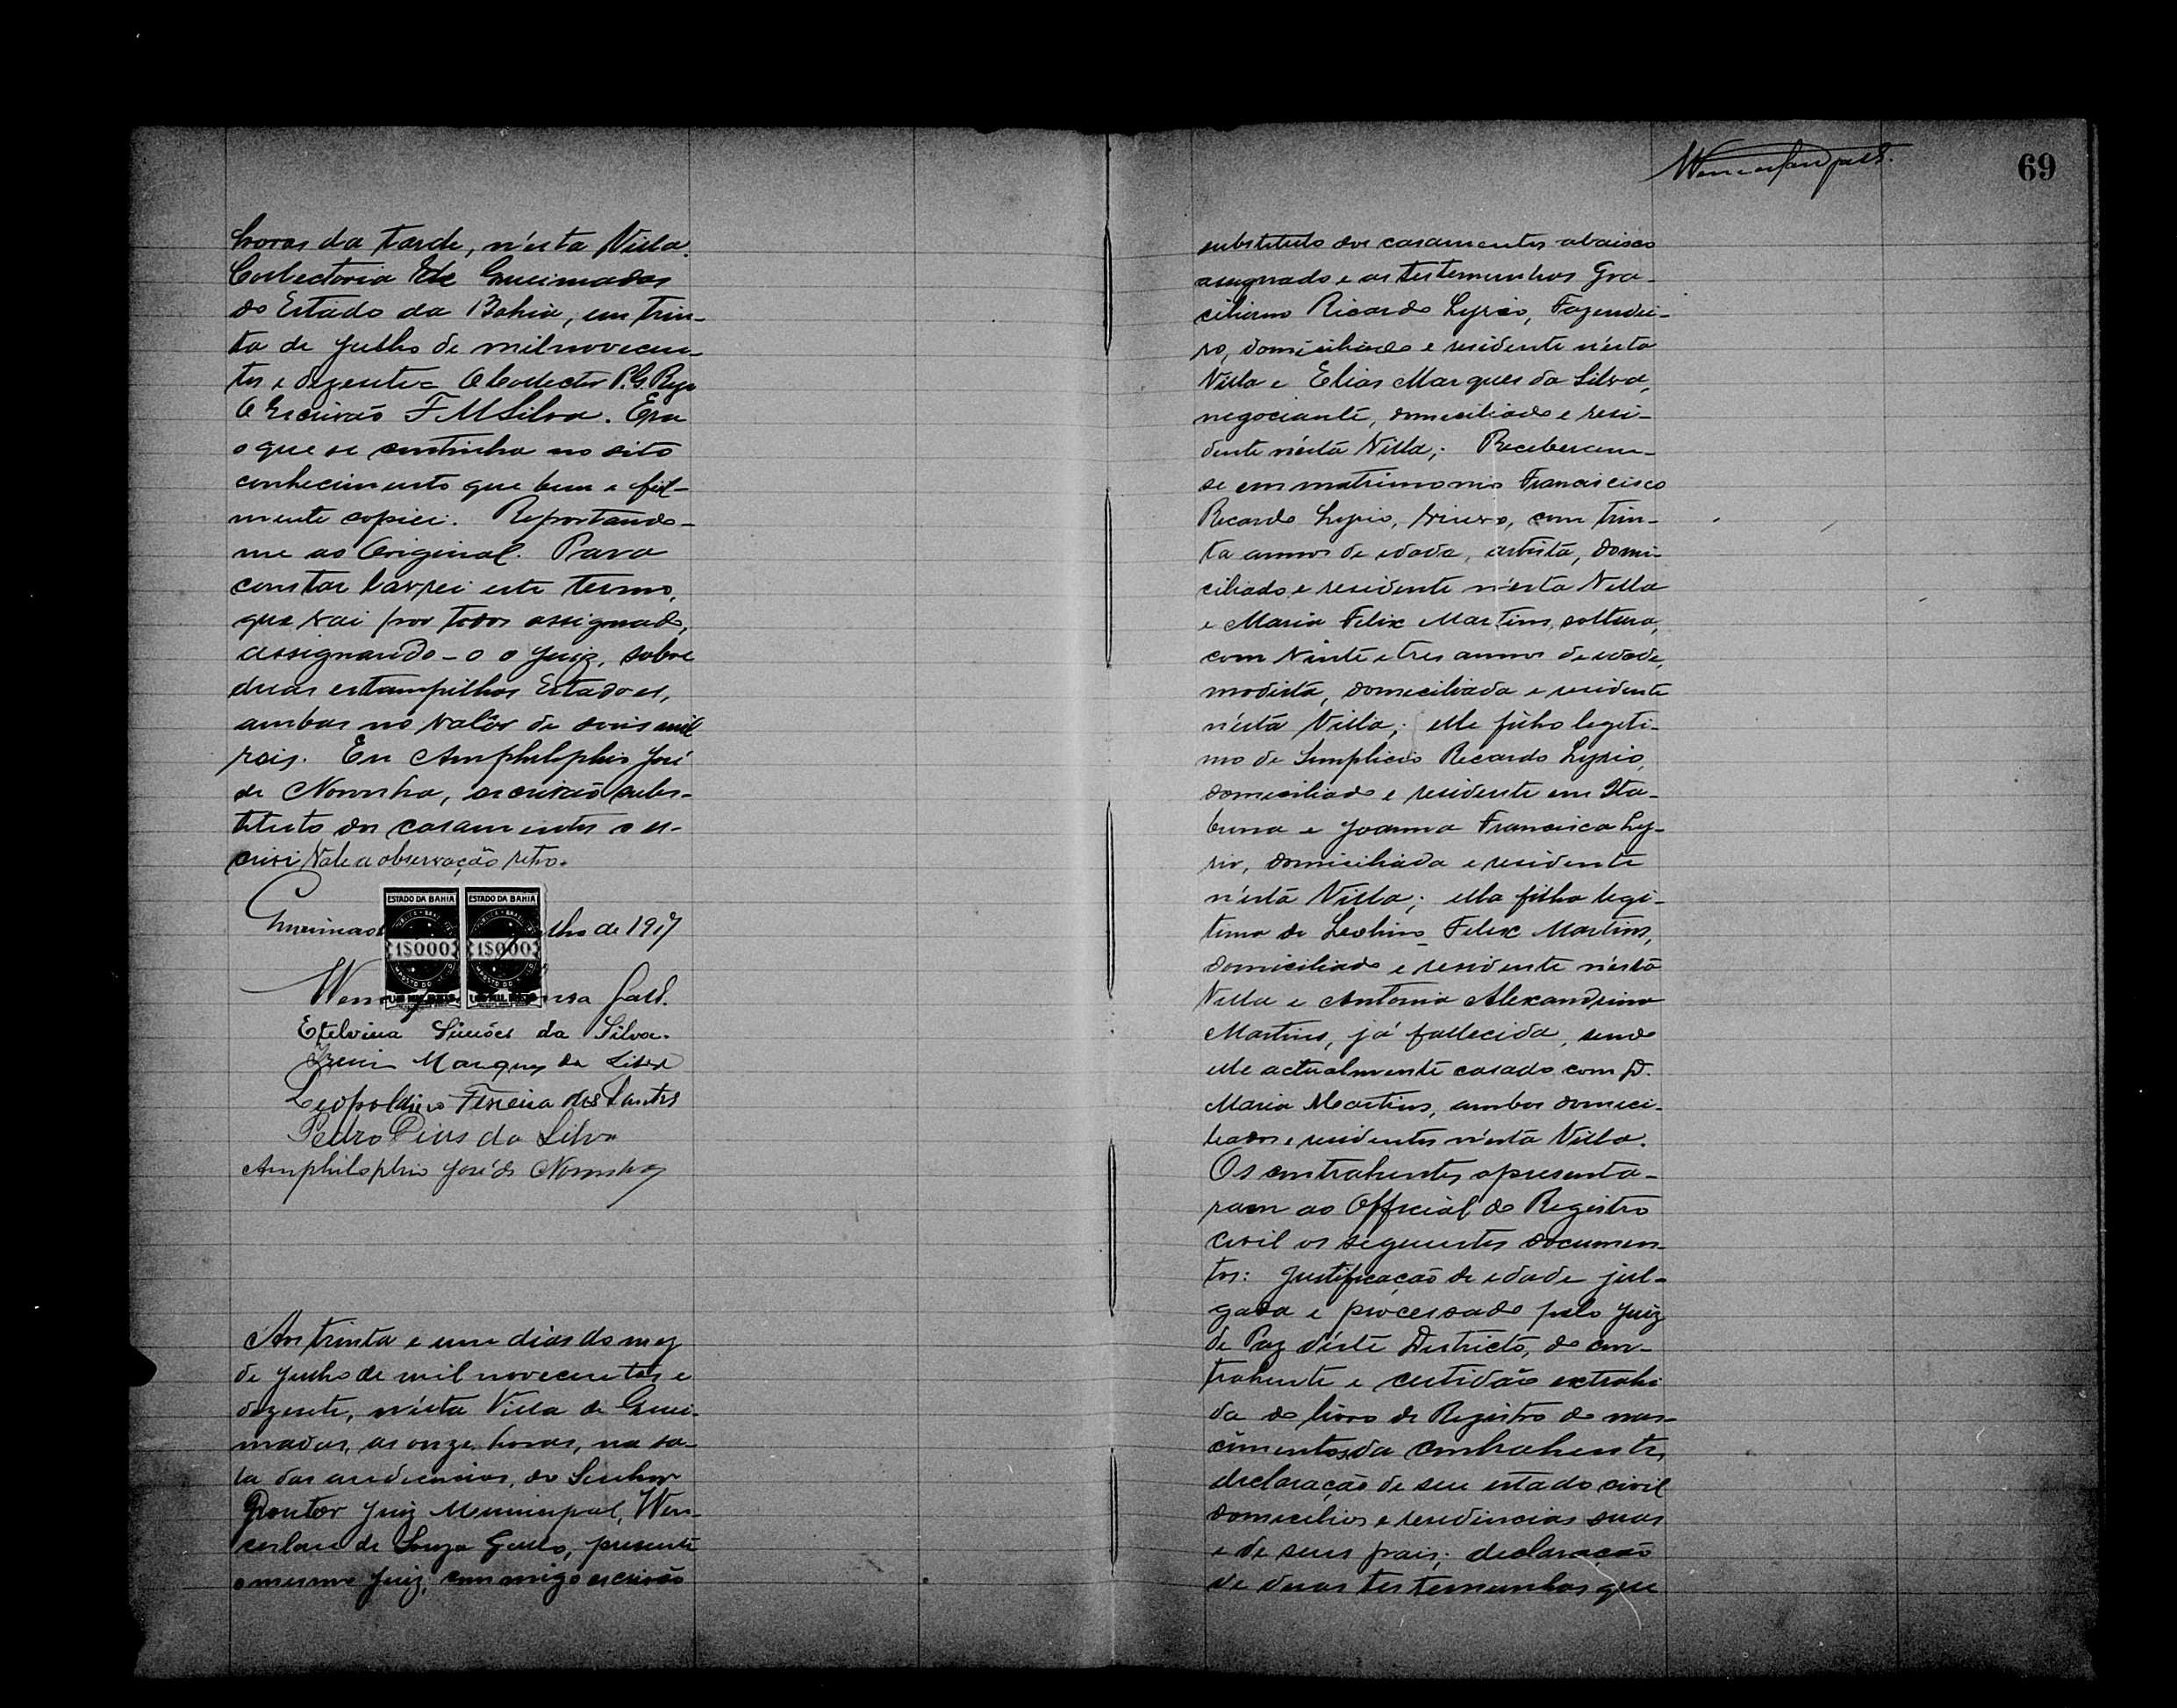 horas da tarde, n'esta Villa.
Collectoria de Queimadas
do Estado da Bahia, em trin-
ta de Julho de milnovecen-
tos e dezesete = O Collector P. G. Rego
O Escrivão F M Silva. Era
o que se continha no dito
conhecimento que bem e fiel-
mente copiei. Reportando-
me ao Original. Para
constar lavrei este termo,
que vai por todos assignado,
assignando-o o Juiz, sobre
duas estampilhas Estadoaes,
ambas no valôr de dois mil
reis. Eu Amphilophio José
de Noronha, escrivão subs-
tituto dos casamentos o es-
crivi Vale a observação retro.
ESTADO DA BAHIA ESTADO DA BAHIA
Queimad lho de 1917
1$000 1$000
Wen Gall.
Etelvina Simões da Silva.
Marques da Silva
Leopoldino Ferreira dos Santos
Pedro Pius da Silva
Amphilophio José de Noronha
Aos trinta e um dias do mez
de Julho de mil novecentos e
dezesete, n'esta Villa de Quei-
madas, as onze horas, na sa-
la das audiencias, do Senhor
Doutor Juiz Municipal, Wen-
ceslau de Souza Gallo, presente
o mesmo Juiz, commigo escrivão
69
substituto dos casamentos abaixo
assignado e as testemunhas Gra-
ciliano Ricardo Lyrio, Fazendei-
ro, domiciliado e residente n'esta
Villa e Elias Marques da Silva,
negociante, domiciliado e resi-
dente n'esta Villa; Receberam-
se em matrimonio Francisco
Ricardo Lyrio, viuvo, com trin-
ta annos de idade, artista, domi-
ciliado e residente n'esta Villa
e Maria Felix Martins, solteira,
com vinte e tres annos de idade,
modista, domiciliada e residente
n'esta Villa; elle filho legiti-
mo de Simplicio Ricardo Lyrio,
domiciliado e residente em Ita-
buna e Joanna Francisca Ly-
rio, domiciliada e residente
n'esta Villa; ella filha legi-
tima de Leolino Felix Martins,
domiciliado e residente n'esta
Villa e Antonia Alexandrina
Martins, já fallecida, sendo
elle actualmente casado com D.
Maria Martins, ambos domici-
liados e residentes n'esta Villa.
Os contrahentes apresenta-
ram ao Official do Registro
Civil os seguintes documen-
tos: Justificação de edade jul-
gada e processado pelo Juiz
de Paz d'este Districto, do con-
trahente e certidão extrahi
da do livro de Registro de nas-
cimentos da contrahente,
declaração de seu estado civil
domicilios e residencias suas
e de seus pais; declaração
de duas testemunhas que